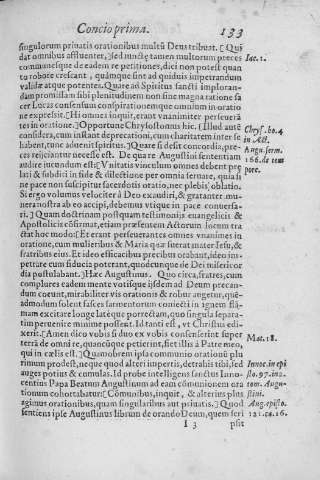 Concio prima. 133
singulorum priuatis orationibus multũ Deus tribuat. [Qui
dat omnibus affluenter,] sed nunc tamen multorum preces
communesque de eadem re petitiones, dici non potest quan
to robore crescant, quámque sint ad quiduis impetrandum
validæ atque potentes. Quare ad Spiritus sancti imploran-
dam promissam sibi plenitudinem non sine magna ratione sa
cer Lucas consensum conspirationemque omnium in oratio
ne expressit. [Hi omnes inquit, erant vnanimiter perseuerã
tes in oratione.] Opportune Chrysostomus hic. [Illud autẽ
considera, cum instant deprecationi, cum charitatem inter se
habent, tunc aduenit spiritus.] Quare si desit concordia, pre-
ces reijciantur necesse est. De qua re Augustini sententiam
audire iucundum est; [Vnitatis vinculum omnes debent
lati & subditi in fide & dilectione per omnia seruare, quia si
ne pace non suscipitur sacerdotis oratio, nec plebis oblatio.
Si ergo volumus velociter à Deo exaudiri, & gratanter mu-
nera nostra ab eo accipi, debemus vtique in pace conuersa-
ri.] Quam doctrinam postquam testimonijs euangelicis &
Apostolicis cõfirmat, etiam præsentem Actorum locum tra
ctat hoc modo; [Et erant perseuerantes omnes vnanimes in
oratione, cum mulieribus & Maria quæ fuerat mater Iesu, &
fratribus eius. Et ideo efficacibus precibus orabant, ideo im-
petrare cum fiducia poterant, quodcunque de Dei misericor
dia postulabant.] Hæc Augustinus. Quo circa, fratres, cum
complures eadem mente votisque ijsdem ad Deum precan-
dum coeunt, mirabiliter vis orationis & robur augetur, quẽ-
admodum solent fasces sarmentorum coniecti in ignem flã-
mam excitare longe latéque porrectam, quo singula separa-
tim peruenire minime posset. Id tanti est, vt Christus edi-
xerit. [Amen dico vobis si duo ex vobis consenserint super
terrã de omni re, quancũque petierint, fiet illis à Patre meo,
qui in cælis est.] Quamobrem ipsa communio orationũ plu
rimum prodest, neque quod alteri impertis, detrahis tibi, sed
auges potius & cumulas. Id probe intelligens sanctus Inno-
centius Papa Beatum Augustinum ad eam cõmunionem ora
tionum cohortabatur: [Cõmunibus, inquit, & alterius plus
agimus orationibus, quam singularibus aut priuatis.] Quod
sentiens ipse Augustinus librum de orando Deum, quem scri
I 3 psit
Iac. 1.
Chrys. ho. 4
in Act.
Aug. serm.
166. de tem
pore.
Mat. 18.
Innoc. in epi
sto. 97. int.
tom. Augu-
stini.
Aug. episto.
121. ca. 16.